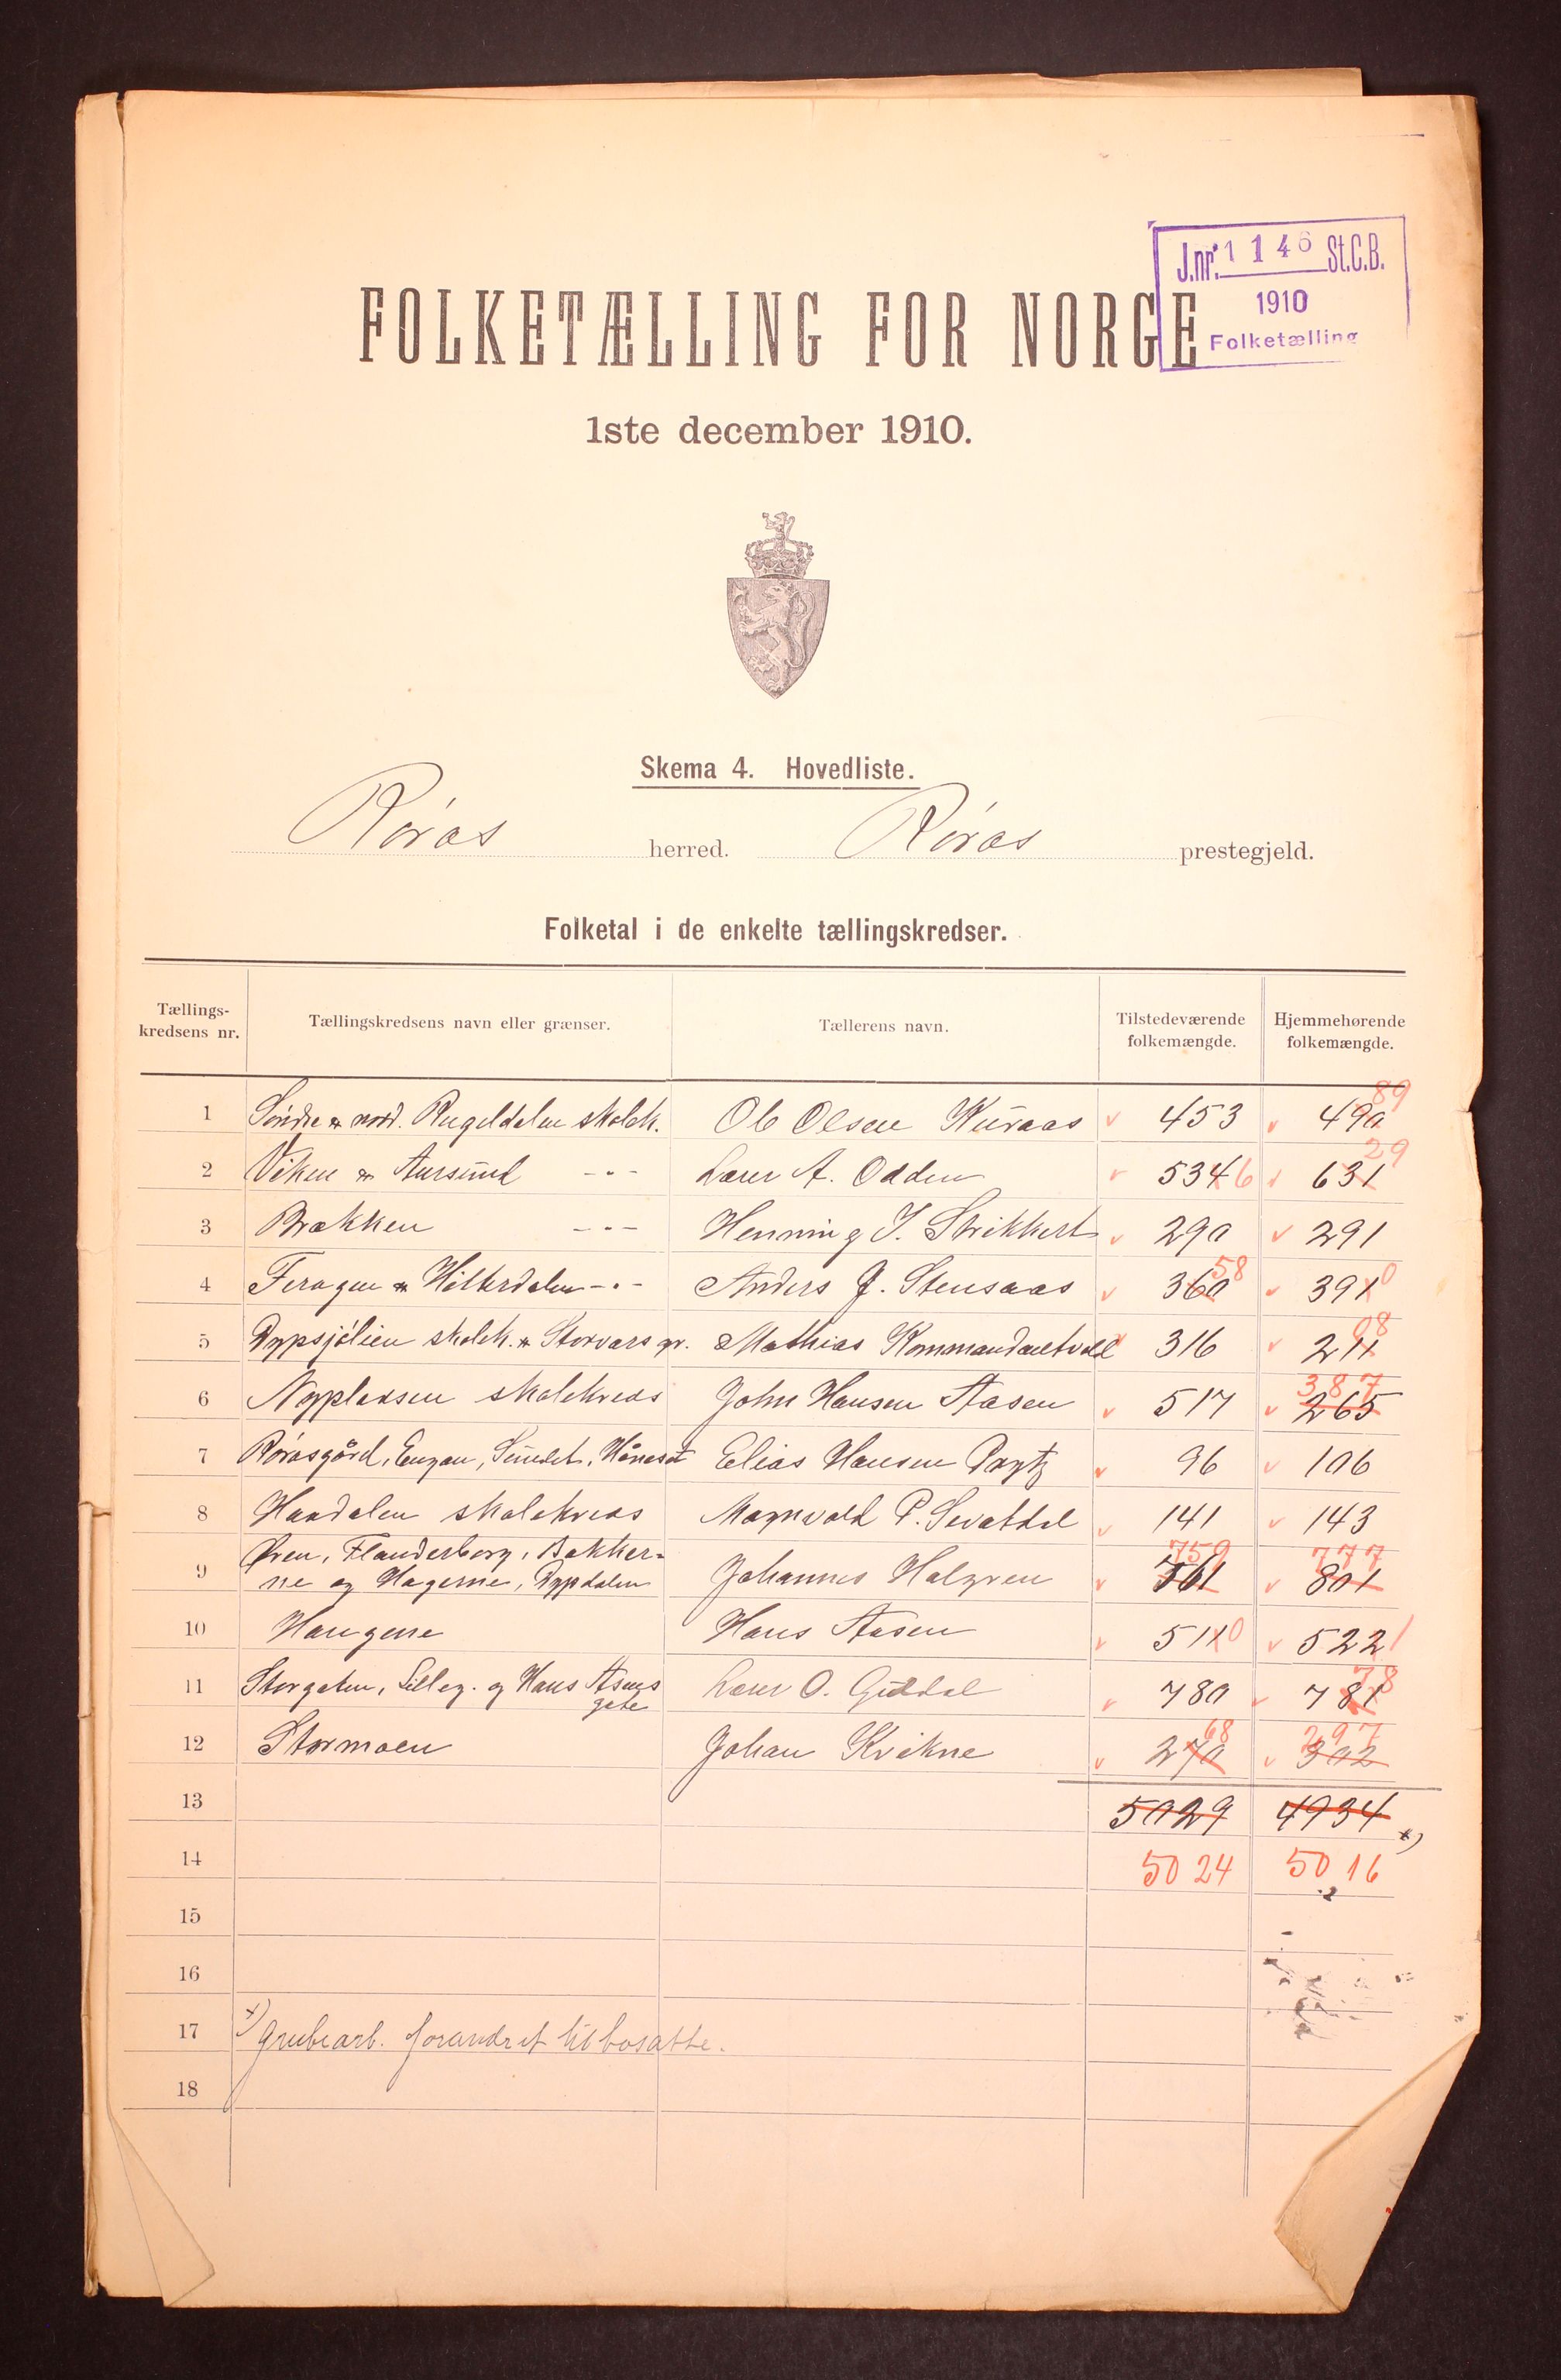 J.nr. 1146 St.C.B.
1910
Folketælling
FOLKETÆLLING FOR NORGE
1ste december 1910.
Skema 4. Hovedliste.
Røros herred. Røros prestegjeld.
Folketal i de enkelte tællingskredser.
Tællings-
kredsens nr.
Tællingskredsens navn eller grænser.
Tællerens navn.
Tilstedeværende
folkemængde.
Hjemmehørende
folkemængde.
89
1 Søndre & nord. Rugeldalen skolek. Ole Olsen Kuraas 453 490
29
2 Viken & Aursund -"- Lærer A. Odden 534 6 631
3 Brækken -"- Henning J. Strikkert 290 291
58
4 Feragen & Hitterdalen -"- Anders J. Stensaas 360 391 0
08
5 Dypsjølien skolek. & Storvars gr. Mathias Kommandantvold 316 211
387
6 Nypladsen skolekreds John Hansen Aasen 517 265
7 Rørosgård, Engan, Sundet, Håneset Elias Hansen Prytz 96 106
8 Haadalen skolekreds Magnvald P. Sevatdal 141 143
759 777
9 Øren, Flanderborg, Bakker-
ne og Hagerne, Dypdalen Johannes Halgren 761 801
10 Haugene Hans Aasen 511 0 522 1
78
11 Storgaten, Lilleg. og Hans Aasens
gate Lærer O. Guldal 780 781
68 297
12 Stormoen Johan Kvikne 270 302
13 5029 4934 x)
14 5024 5016
15
16
17 x) Grubearb. forandret til bosatte.
18